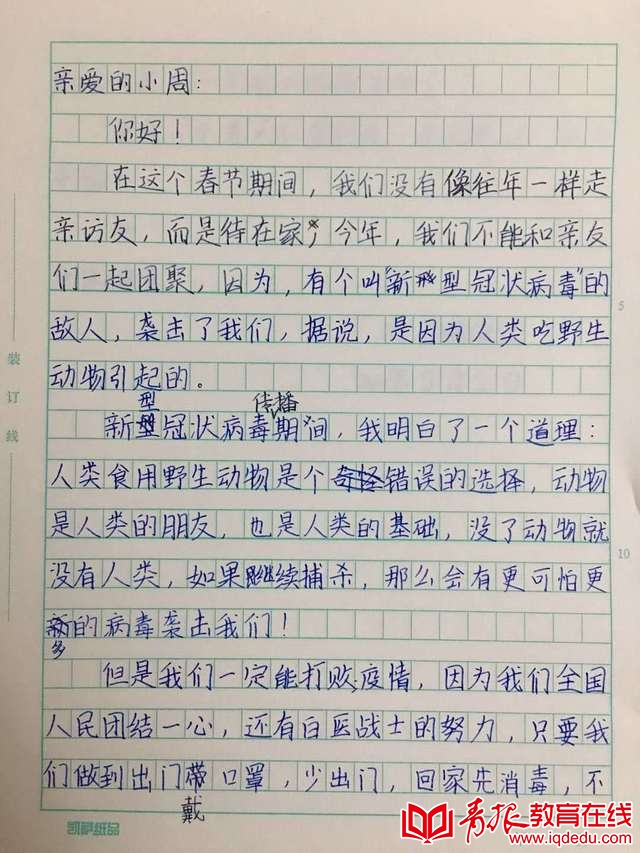 亲爱的小周：
你好！
在这个春节期间，我们没有像往年一样走
亲访友，而是待在家，今年，我们不能和亲友
们一起团聚，因为，有个叫“新型冠状病毒”的
敌人，袭击了我们，据说，是因为人类吃野生
动物引起的。
新型冠状病毒传播期间，我明白了一个道理：
人类食用野生动物是个错误的选择，动物
是人类的朋友，也是人类的基础，没了动物就
没有人类，如果继续捕杀，那么会有更可怕更
多的病毒袭击我们！
但是我们一定能打败疫情，因为我们全国
人民团结一心，还有白医战士的努力，只要我
们做到出门戴口罩，少出门，回家先消毒，不
装订线
5
10
凯萨纸品
青报教育在线
www.iqdedu.com